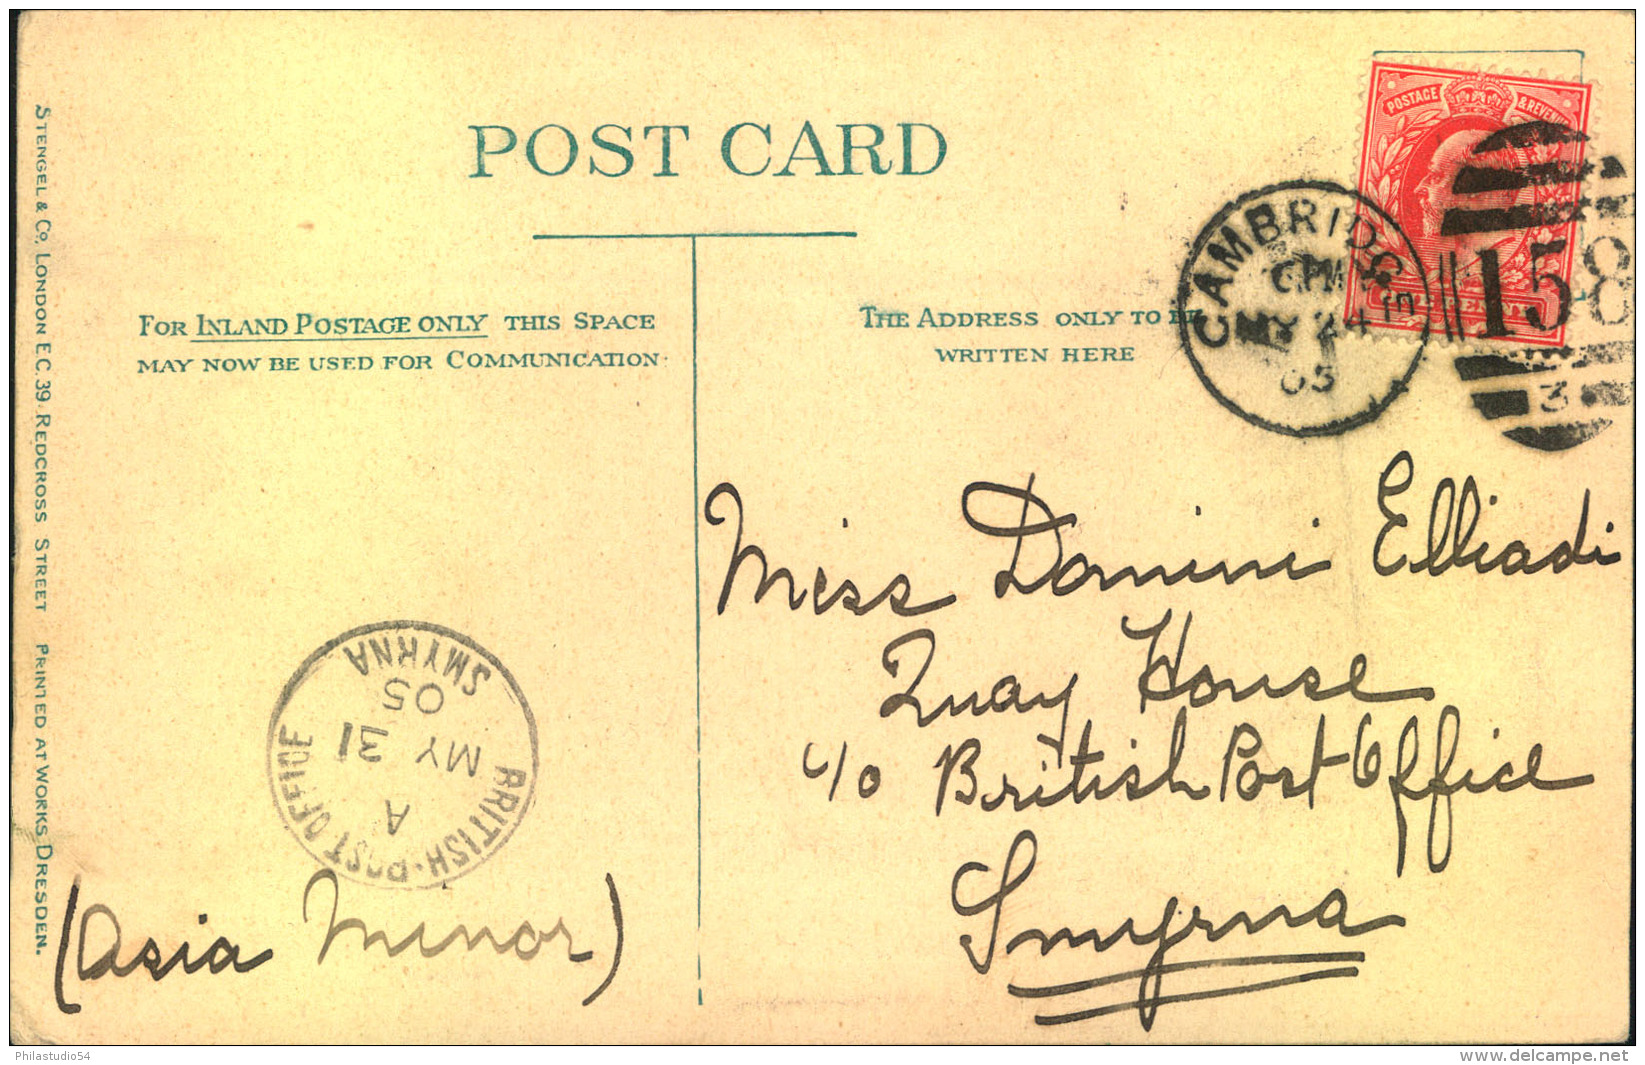 POST CARD
FOR INLAND POSTAGE ONLY THIS SPACE
MAY NOW BE USED FOR COMMUNICATION.
THE ADDRESS ONLY TO BE
WRITTEN HERE
POSTAGE & REVENUE
ONE PENNY
CAMBRIDGE
6 PM
MY 24
05
158
3
Miss Domini Elliadi
Quay House
c/o British Post Office
Smyrna
(Asia Minor)
BRITISH · POST OFFICE
A
MY 31
05
SMYRNA
STENGEL & Co., LONDON E.C. 39 REDCROSS STREET PRINTED AT WORKS DRESDEN.
Philastudio54
delcampe.net